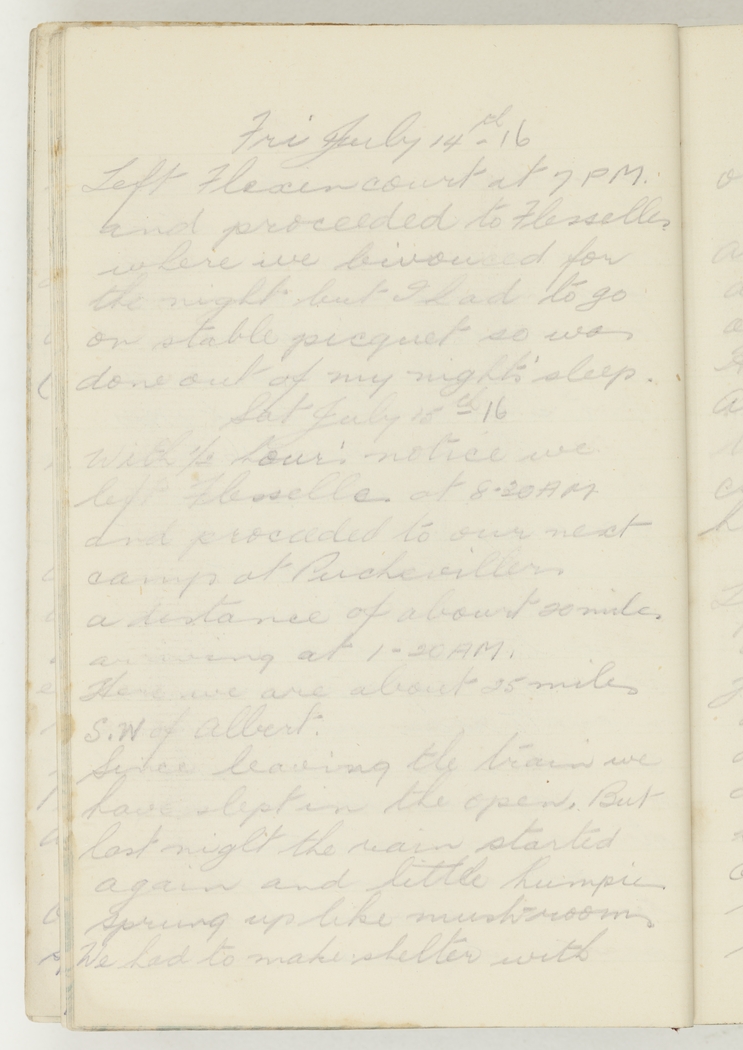 Fri July 14th-16
Left Flexencourt at 7 PM.
and proceeded to Flesselles
where we bivouced for
the night but I had to go
on stable picquet so was
done out of my nights' sleep.
Sat July 15th 16
With ½ hour's notice we
left Flesselles at 8-20 AM
and proceeded to our next
camp at Puchevillers
a distance of abourt 20 miles
arriving at 1-20 AM.
Here we are about 25 miles
S.W of Albert.
Since leaving the train we
have slept in the open. But
last night the rain started
again and little humpies
sprung up like mushrooms
We had to make shelter with